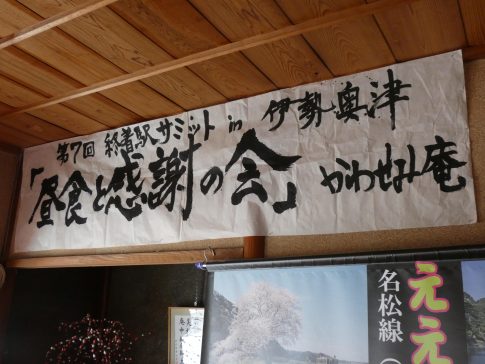 第7回 終着駅サミット in 伊勢奥津
「昼食と感謝の会」 かわせみ庵
ええ
名松線(